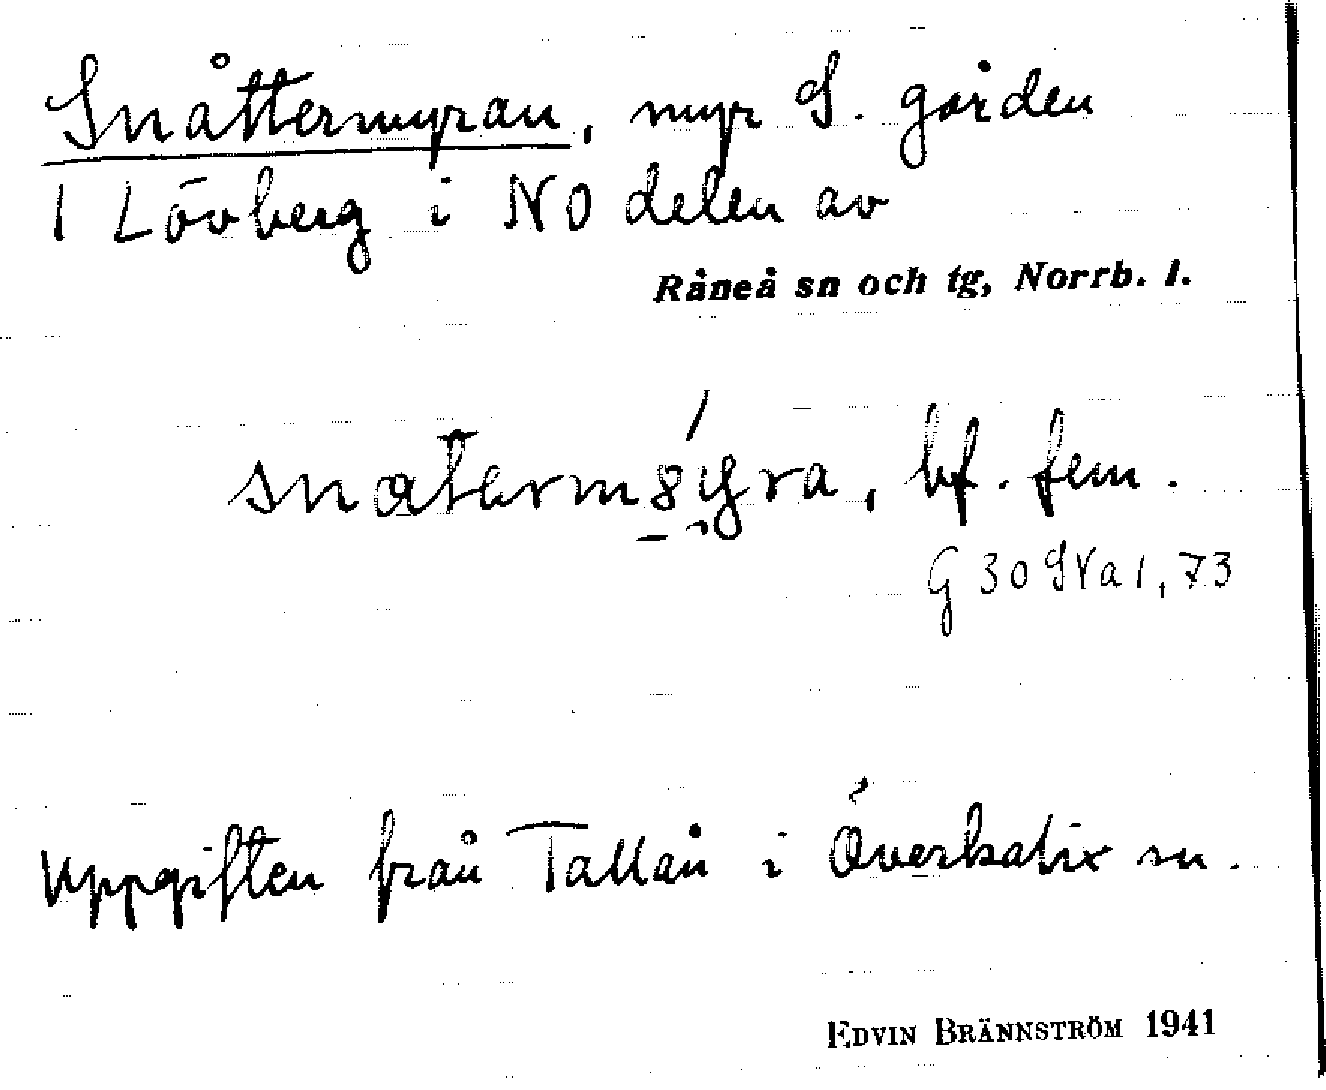 Snåttermyran, myr S. gården
1 Lövberg i NO delen av
Råneå sn och tg, Norrb. l.
bf. fem.
G 30 SVa1, 73
Uppgiften från Tallån i Överkalix sn.
EDVIN BRÄNNSTRÖM 1941